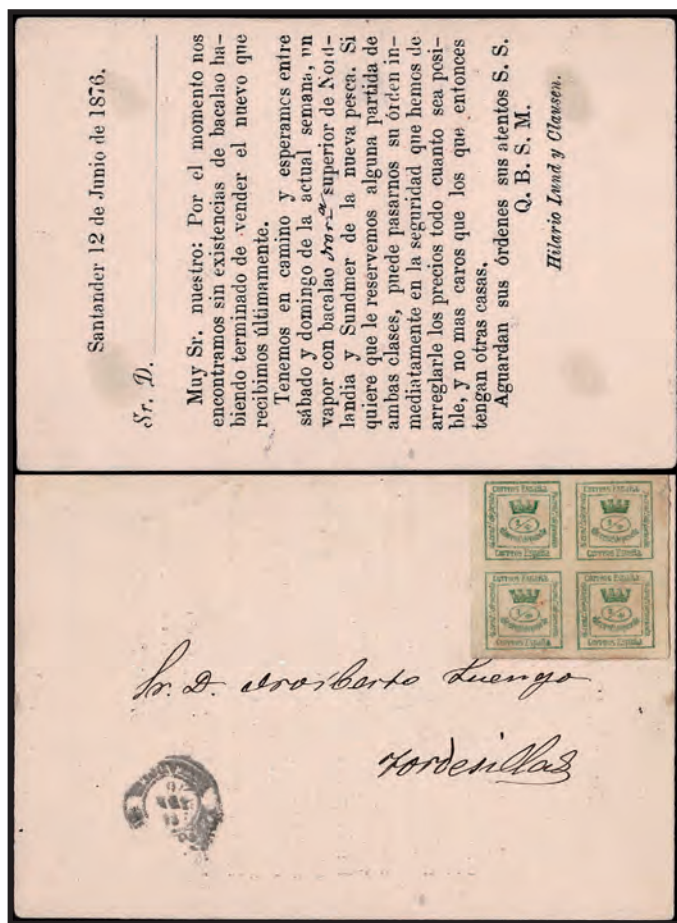 Santander 12 de Junio de 1876.
Sr. D.
Muy Sr. nuestro: Por el momento nos
encontramos sin existencias de bacalao ha-
biendo terminado de vender el nuevo que
recibimos últimamente.
Tenemos en camino y esperamos entre
sábado y domingo de la actual semana, un
vapor con bacalao superior de Nord-
landia y Sundmer de la nueva pesca. Si
quiere que le reservemos alguna partida de
ambas clases, puede pasarnos su órden in-
mediatamente en la seguridad que hemos de
arreglarle los precios todo cuanto sea posi-
ble, y no mas caros que los que entonces
tengan otras casas.
Aguardan sus órdenes sus atentos S. S.
Q. B. S. M.
Hilario Lund y Clausen.
Correos España Correos España
1/4 1/4
de cent. de peseta de cent. de peseta
Correos España Correos España
Correos España Correos España
1/4 1/4
de cent. de peseta de cent. de peseta
Correos España Correos España
Sr. D. Luengo
Tordesillas